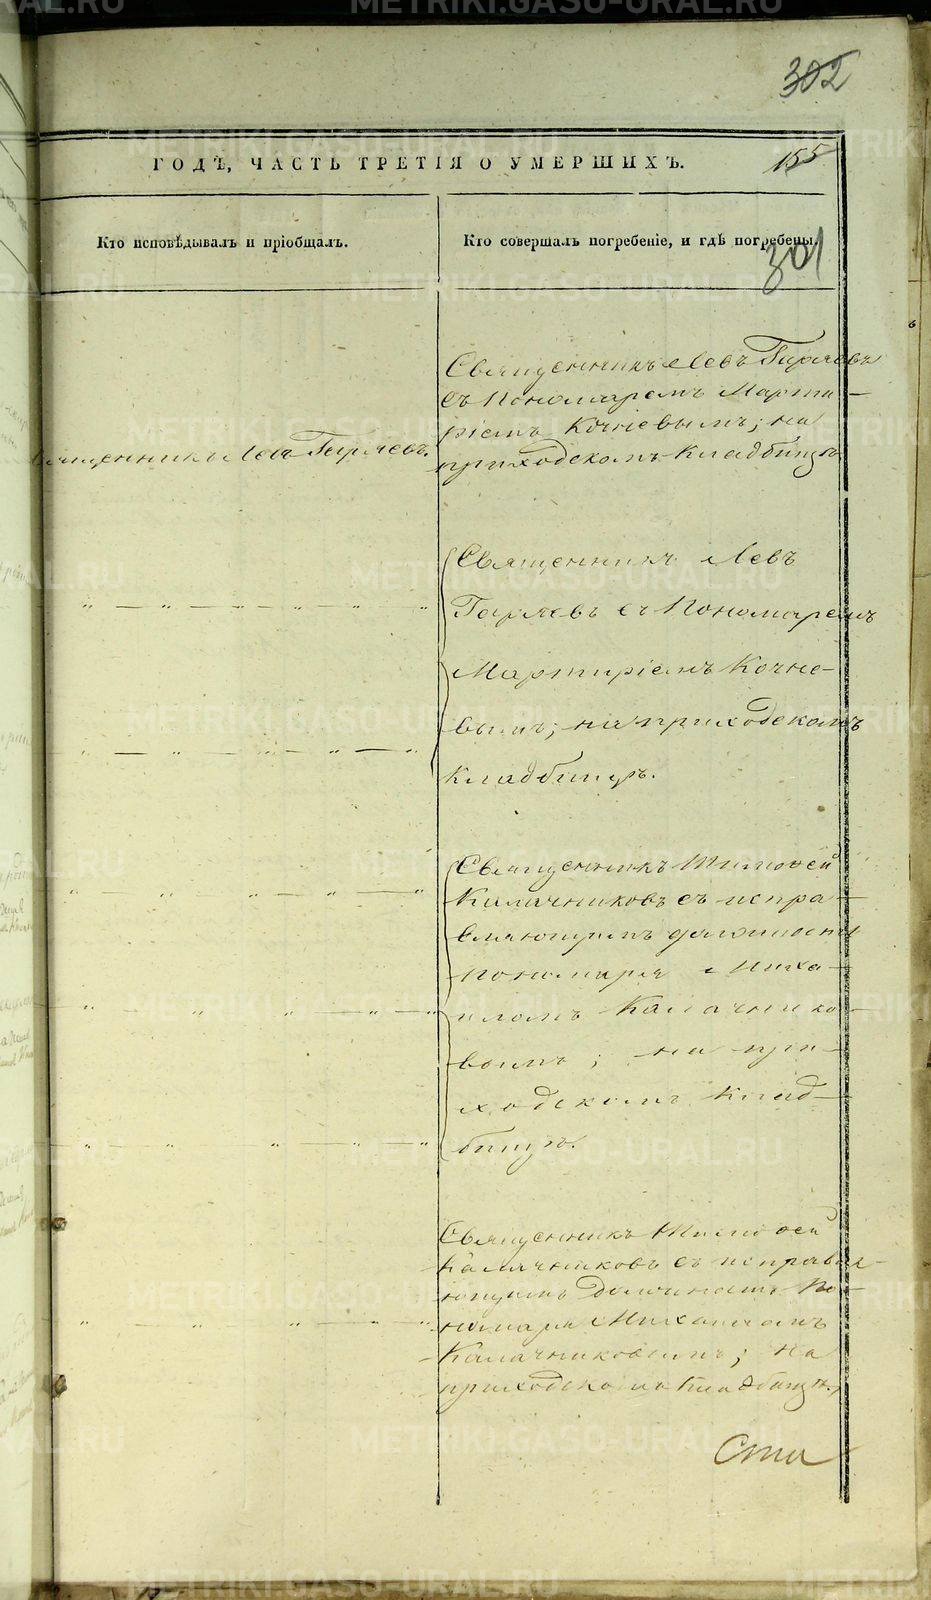 302
155
ГОДЪ, ЧАСТЬ ТРЕТІЯ О УМЕРШИХЪ.
Кто исповѣдывалъ и пріобщалъ.
Кто совершалъ погребеніе, и гдѣ погребены.
301
Священникъ Левъ Гиряевъ
съ Пономаремъ Марти-
ріемъ Кочневымъ; на
приходскомъ Кладбищѣ
Священникъ Левъ Гиряевъ.
Священникъ Левъ
Гиряевъ съ Пономаремъ
Мартиріемъ Кочне-
вымъ; на приходскомъ
Кладбищѣ.
Священникъ Тимоѳей
Калачниковъ съ испра-
вляющимъ должность
пономаря Миха-
иломъ Калачнико-
вымъ; на при-
ходскомъ Клад-
бищѣ.
Священникъ Тимоѳей
Калачниковъ съ исправля-
ющимъ должность По-
номаря Михаиломъ
Калачниковымъ; на
приходскомъ Кладбищѣ.
Сти
METRIKI.GASO-URAL.RU